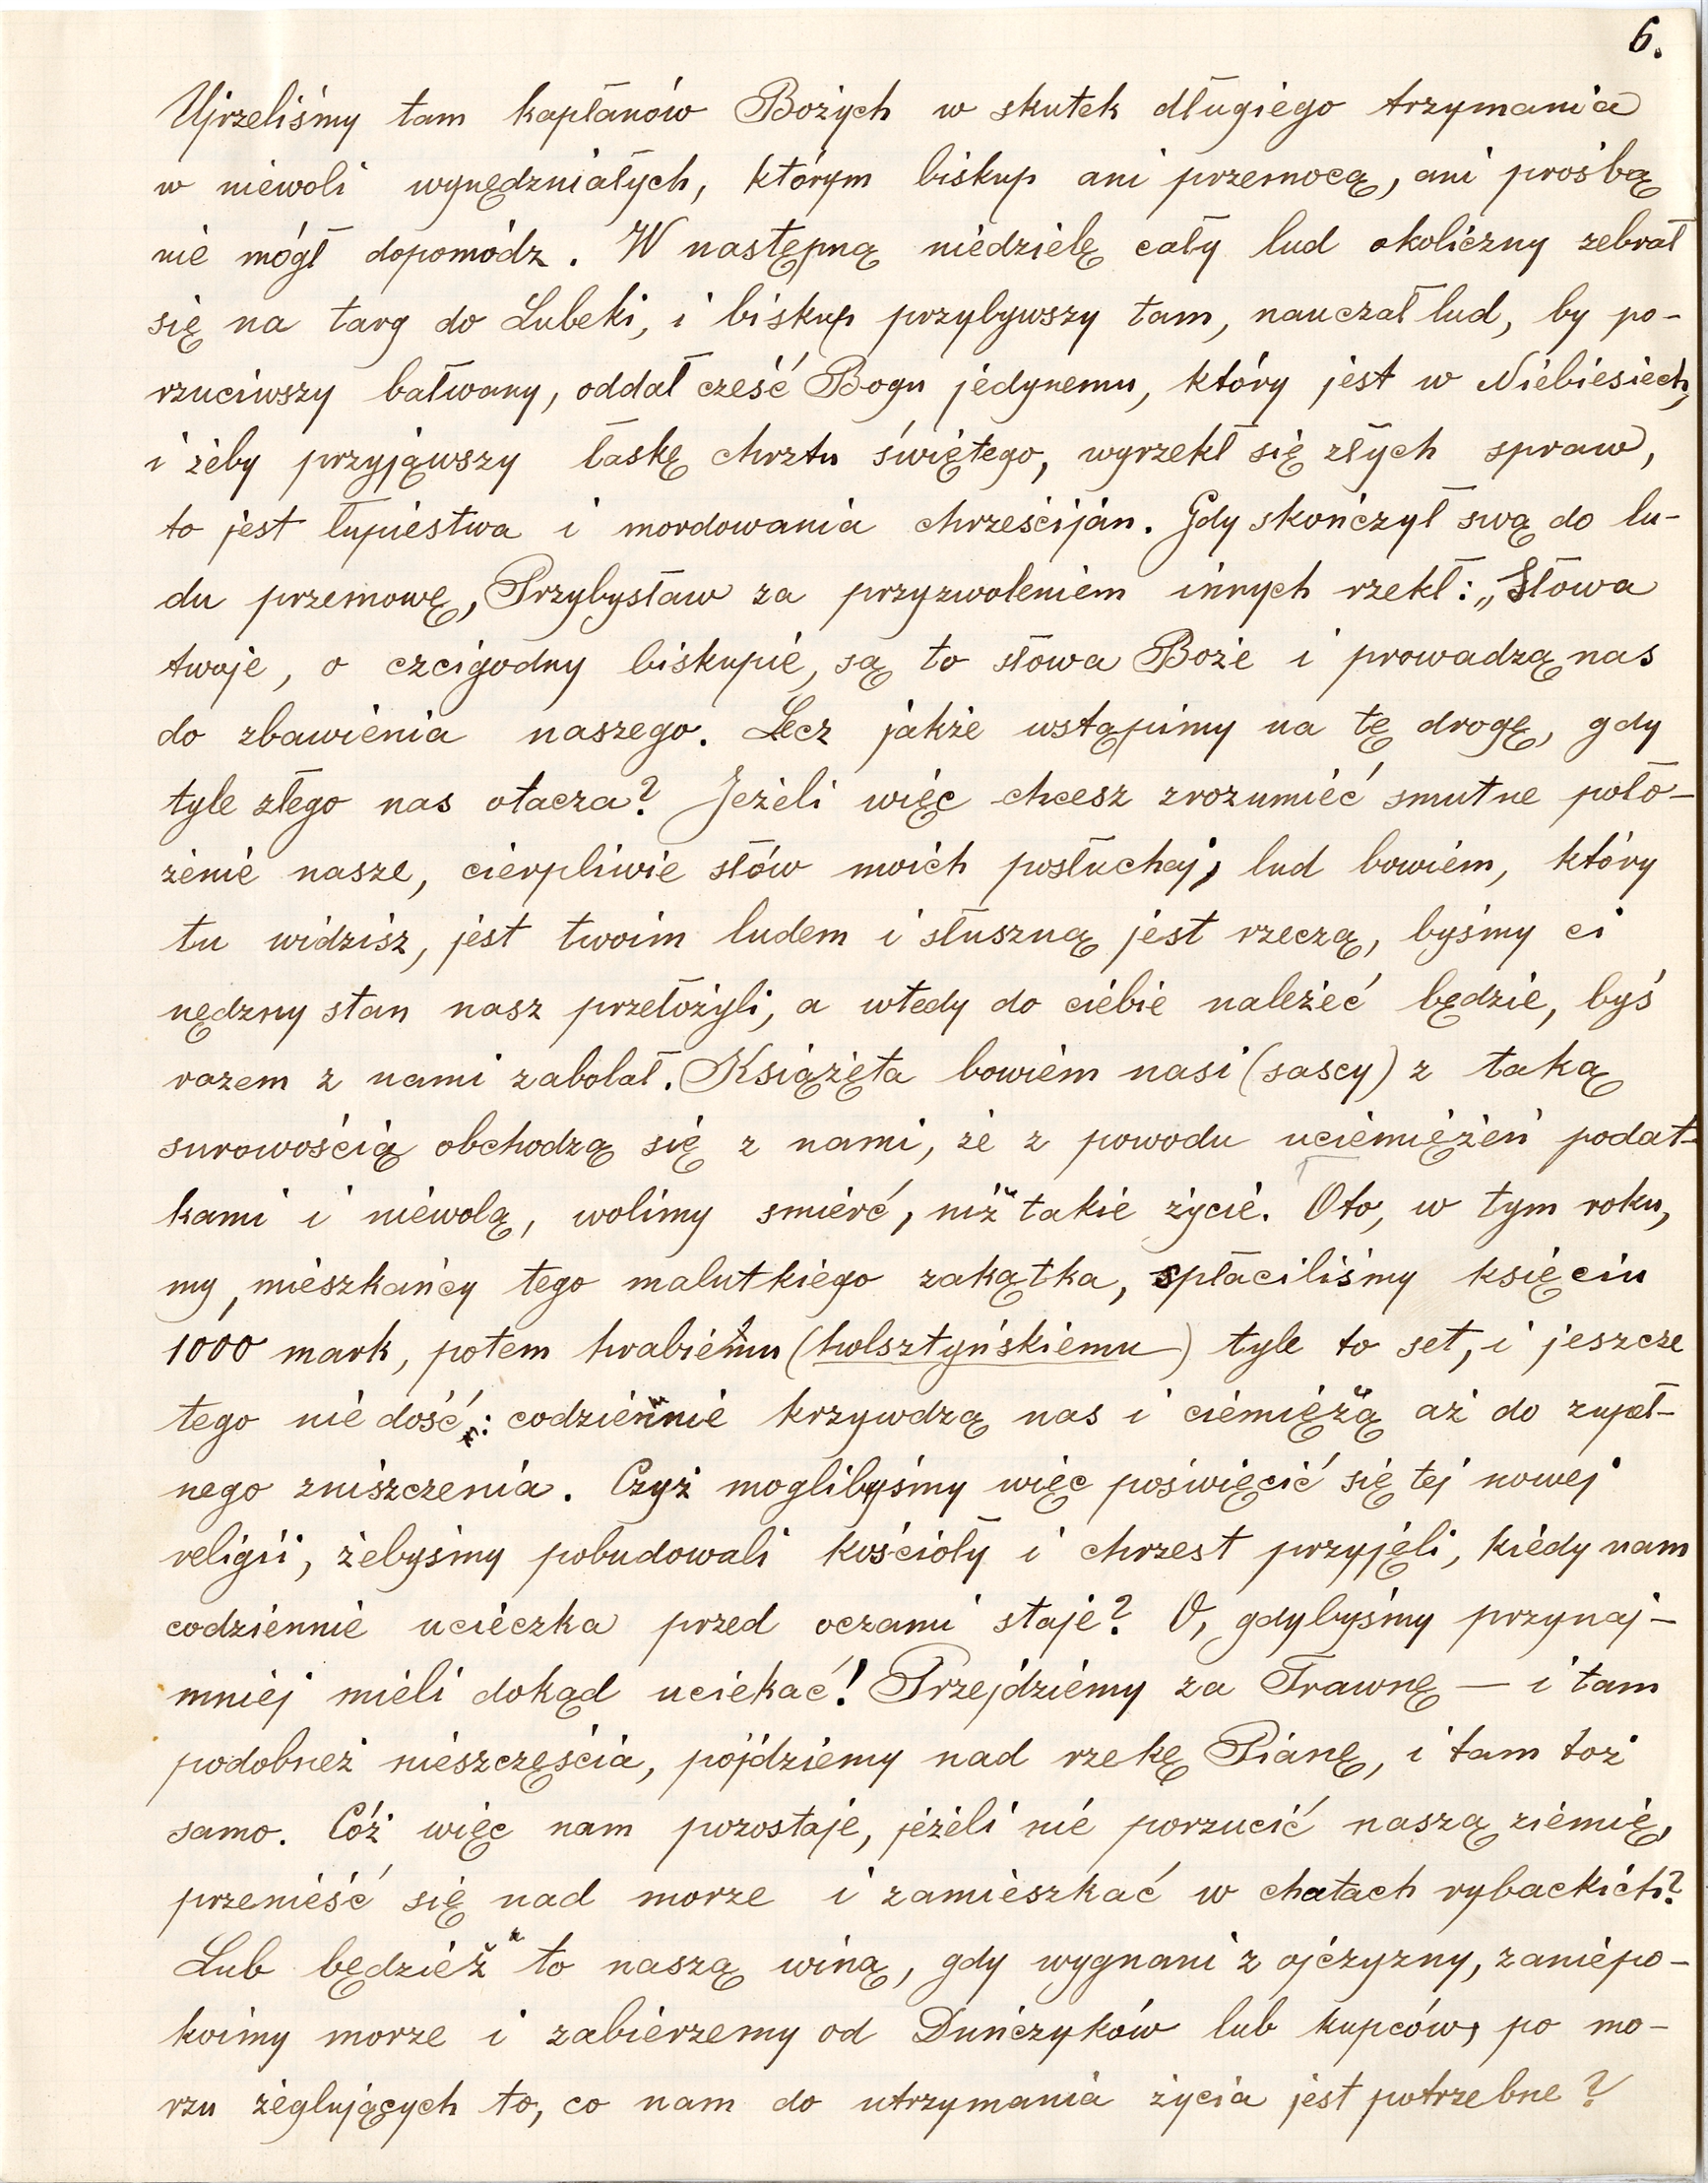 6.
Ujrzeliśmy tam kapłanów Bożych w skutek długiego trzymania
w niewoli wynędzniałych, którym biskup ani przemocą, ani prośbą
nie mógł dopomódz. W następną niedzielę cały lud okoliczny zebrał
się na targ do Lubeki, i biskup przybywszy tam, nauczał lud, by po-
rzuciwszy bałwany, oddał cześć Bogu jedynemu, który jest w Niebiesiech,
i żeby przyjąwszy łaskę chrztu świętego, wyrzekł się złych spraw,
to jest łupiestwa i mordowania chrześcijan. Gdy skończył swą do lu-
du przemowę, Przybysław za przyzwoleniem innych rzekł: „Słowa
twoje, o czcigodny biskupie, są to słowa Boże i prowadzą nas
do zbawienia naszego. Lecz jakże wstąpimy na tę drogę, gdy
tyle złego nas otacza? Jeżeli więc chcesz zrozumieć smutne poło-
żenie nasze, cierpliwie słów moich posłuchaj, lud bowiem, który
tu widzisz, jest twoim ludem i słuszną jest rzeczą, byśmy ci
nędzny stan nasz przełożyli, a wtedy do ciebie należeć będzie, byś
razem z nami zabolał. Książęta bowiem nasi (sascy) z taką
surowością obchodzą się z nami, że z powodu uciemiężeń podat-
kami i niewolą, wolimy smierć, niż takie życie. Oto, w tym roku,
my, mieszkańcy tego malutkiego zakątka, spłaciliśmy księciu
1000 mark, potem hrabiemu (holsztyńskiemu) tyle to set, i jeszcze
tego nie dość: codziennie krzywdzą nas i ciemiężą aż do zupeł-
nego zniszczenia. Czyż moglibyśmy więc poświęcić się tej nowej
religii, żebyśmy pobudowali kościoły i chrzest przyjęli, kiedy nam
codziennie ucieczka przed oczami staje? O, gdybyśmy przynaj-
mniej mieli dokąd uciekać! Przejdziemy za Trawnę — i tam
podobneż nieszczęścia, pójdziemy nad rzekę Pianę, i tam toż
samo. Cóż więc nam pozostaje, jeżeli nie porzucić naszą ziemię,
przenieść się nad morze i zamieszkać w chatach rybackich?
Lub będzież to naszą winą, gdy wygnani z ojczyzny, zaniepo-
koimy morze i zabierzemy od Duńczyków lub kupców, po mo-
rzu żeglujących to, co nam do utrzymania życia jest potrzebne?